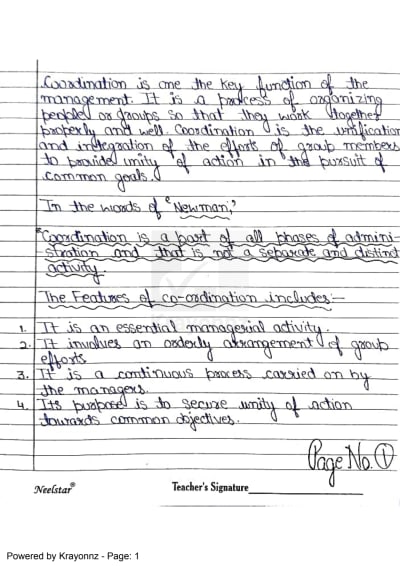 Coordination is one the key function of the
management. It is a process of organizing
people or groups so that they work together
properly and well. Coordination is the unification
and integration of the efforts of group members
to provide unity of action in the pursuit of
common goals.
In the words of "Newman,"
"Coordination is a part of all phases of admini-
stration and that is not a separate and distinct
activity.
The Features of co-ordination includes:-
1. It is an essential managerial activity.
2. It involves an orderly arrangement of group
efforts
3. It is a continuous process carried on by
the managers.
4. Its purpose is to secure unity of action
towards common objectives.
Page No. 1
Neelstar®
Teacher's Signature
Powered by Krayonnz - Page: 1